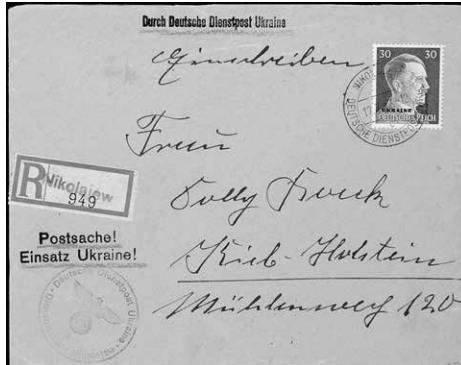 Durch Deutsche Dienstpost Ukraine
Einschreiben
30 30
UKRAINE
DEUTSCHES REICH
DEUTSCHE DIENSTPOST
Frau
R Nikolajew
949
Postsache!
Einsatz Ukraine!
Deutsche Dienstpost Ukraine
Holstein
Mühlenweg 120